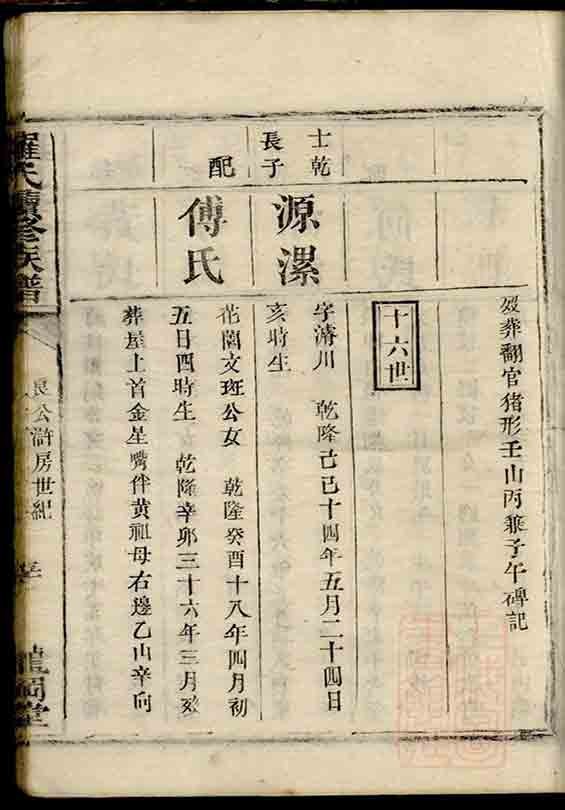 歿葬翻官猪形壬山丙兼子午碑記
十六世
士乾
長子
源漯
字濟川 乾隆己巳十四年五月二十四日
亥時生
配
傅氏
花園文班公女 乾隆癸酉十八年四月初
五日酉時生 乾隆辛卯三十六年三月歿
葬屋上首金星嘴伴黃祖母右邊乙山辛向
羅氏續修族譜
良公滸房世紀
龍岡堂